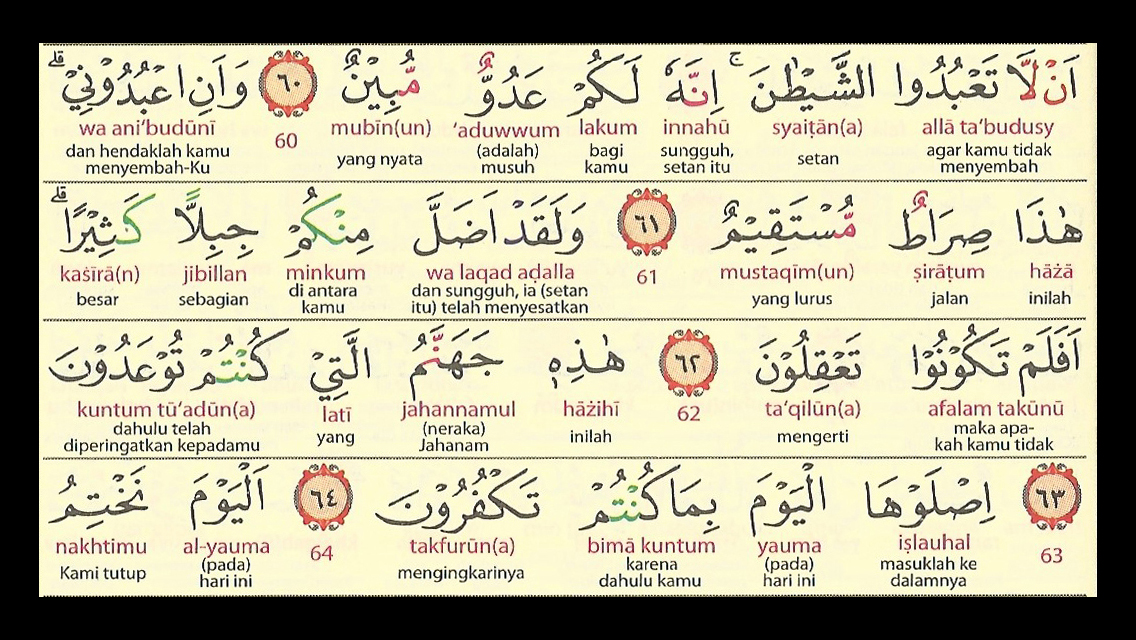 اَنْ لَّا تَعْبُدُوا الشَّيْطٰنَ ۚ اِنَّهٗ لَكُمْ عَدُوٌّ مُّبِيْنٌ ٦٠ وَاَنِ اعْبُدُوْنِيْ ۗ
allā ta‘budusy syaiṭān(a) innahū lakum ‘aduwwum mubīn(un) 60 wa ani‘budūnī
agar kamu tidak menyembah setan sungguh, setan itu bagi kamu (adalah) musuh yang nyata dan hendaklah kamu menyembah-Ku
هٰذَا صِرَاطٌ مُّسْتَقِيْمٌ ٦١ وَلَقَدْ اَضَلَّ مِنْكُمْ جِبِلًّا كَثِيْرًا ۗ
hāżā ṣirāṭum mustaqīm(un) 61 wa laqad aḍalla minkum jibillan kaṡīrā(n)
inilah jalan yang lurus dan sungguh, ia (setan itu) telah menyesatkan di antara kamu sebagian besar
اَفَلَمْ تَكُوْنُوْا تَعْقِلُوْنَ ٦٢ هٰذِهٖ جَهَنَّمُ الَّتِيْ كُنْتُمْ تُوْعَدُوْنَ
afalam takūnū ta‘qilūn(a) 62 hāżihī jahannamul latī kuntum tū‘adūn(a)
maka apa-kah kamu tidak mengerti inilah (neraka) Jahanam yang dahulu telah diperingatkan kepadamu
٦٣ اِصْلَوْهَا الْيَوْمَ بِمَا كُنْتُمْ تَكْفُرُوْنَ ٦٤ اَلْيَوْمَ نَخْتِمُ
63 iṣlauhal yauma bimā kuntum takfurūn(a) 64 al-yauma nakhtimu
masuklah ke dalamnya (pada) hari ini karena dahulu kamu mengingkarinya (pada) hari ini Kami tutup